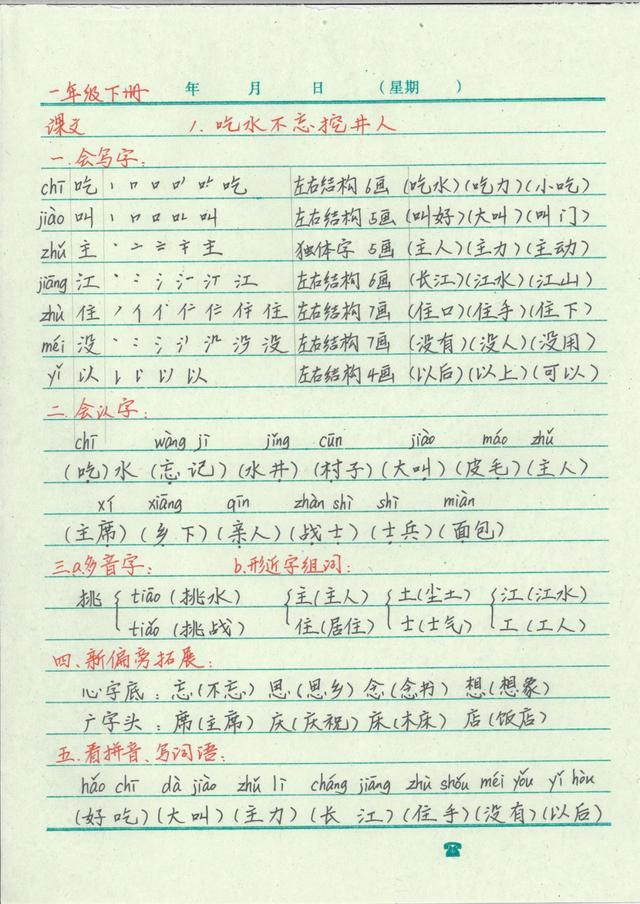 一年级下册 年 月 日 (星期 )
课文 1.吃水不忘挖井人
一.会写字:
chī 吃 丨 口 口 口丿 吃 左右结构 6画 (吃水)(吃力)(小吃)
jiào 叫 丨 口 口 叫 左右结构 5画 (叫好)(大叫)(叫门)
zhǔ 主 丶 亠 二 主 独体字 5画 (主人)(主力)(主动)
jiāng 江 丶 冫 氵 汀 江 左右结构 6画 (长江)(江水)(江山)
zhù 住 丿 亻 仁 住 左右结构 7画 (住口)(住手)(住下)
méi 没 丶 冫 氵 没 左右结构 7画 (没有)(没人)(没用)
yǐ 以 以 左右结构 4画 (以后)(以上)(可以)
二.会认字:
chī wàng jì jǐng cūn jiào máo zhǔ
(吃)水 (忘记)(水井)(村子)(大叫)(皮毛)(主人)
xí xiāng qīn zhàn shì shì miàn
(主席)(乡下)(亲人)(战士)(士兵)(面包)
三a.多音字: b.形近字组词:
挑 { tiāo (挑水) { 主(主人) { 土(尘土) { 江(江水)
tiǎo (挑战) 住(居住) 士(士气) 工(工人)
四、新偏旁拓展:
心字底:忘(不忘) 思(思乡) 念(念书) 想(想象)
广字头:席(主席) 庆(庆祝) 床(木床) 店(饭店)
五.看拼音、写词语:
hǎo chī dà jiào zhǔ lì cháng jiāng zhù shǒu méi yǒu yǐ hòu
(好吃)(大叫)(主力)(长 江)(住手)(没有)(以后)